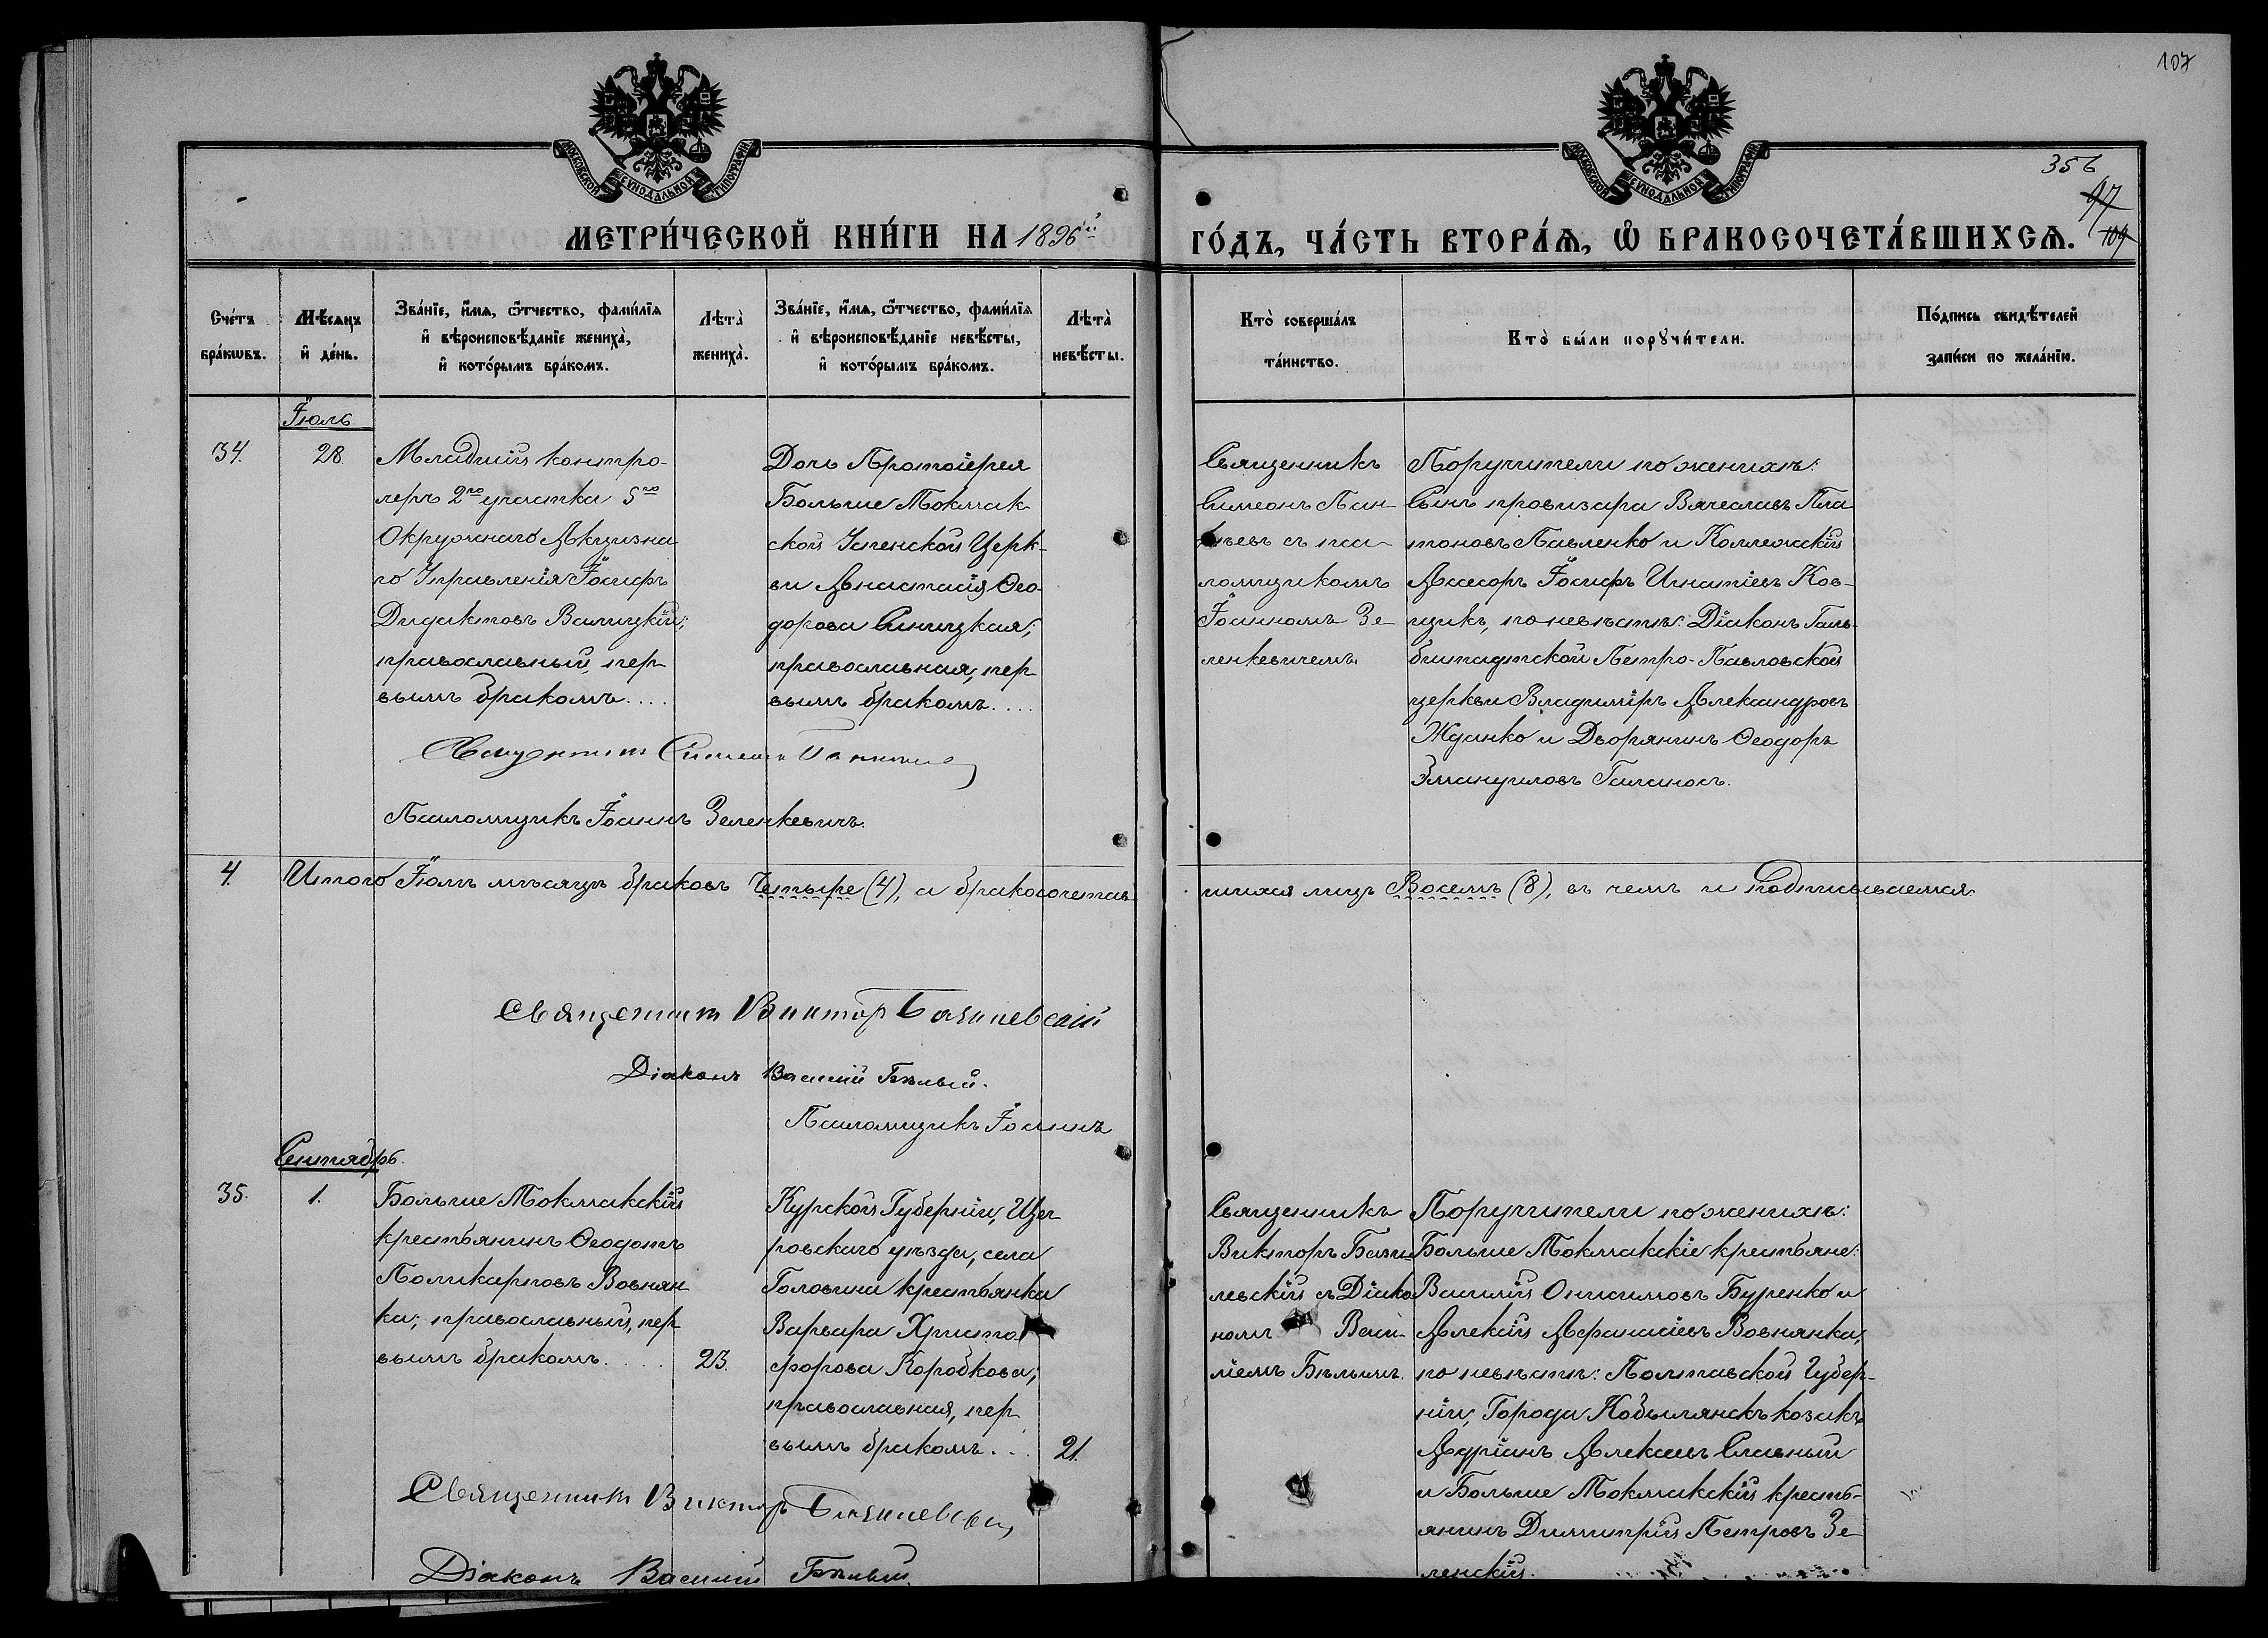 107
МОСКОВСКОЙ СУНОДАЛЬНОЙ ТИПОГРАФІИ
МОСКОВСКОЙ СУНОДАЛЬНОЙ ТИПОГРАФІИ
356
97
109
МЕТРИ́ЧЕСКОЙ КНИ́ГИ НА 1896й
ГО́ДЪ, ЧА́СТЬ ВТОРА́Ѧ, Ѽ БРАКОСОЧЕТА́ВШИХСѦ.
Сче́тъ бра́кѡвъ.
Мѣ́сѧцъ и҆ де́нь.
Зва́нїе, и҆́мѧ, ѻ҆́тчество, фами́лїѧ
и҆ вѣроисповѣ́данїе жениха̀,
и҆ кото́рымъ бра́комъ.
Лѣта̀ жениха̀.
Зва́нїе, и҆́мѧ, ѻ҆́тчество, фами́лїѧ
и҆ вѣроисповѣ́данїе невѣ́сты,
и҆ кото́рымъ бра́комъ.
Лѣта̀ невѣ́сты.
Кто̀ соверша́лъ
та́инство.
Кто̀ бы́ли порꙋчи́тели.
По́дпись свидѣ́телей
за́писи по жела́нїю.
Іюль
34.
28.
Младшій контро-
леръ 2го участка 5го
Окружнаго Акцизна
го Управленія Іосифъ
Дидактовъ Валицкій;
православный, пер
вымъ бракомъ....
Дочь Протоіерея
Больше Токмак
ской Успенской Церк-
ви Анастасія Ѳео-
дорова Синицкая;
православная, пер
вымъ бракомъ....
Священникъ
Симеонъ Пан-
тьевъ съ пса-
ломщикомъ
Іоанномъ Зе-
ленкевичемъ
Поручители по женихѣ:
Сынъ провизора Вячеславъ Пла
тоновъ Павленко и Коллежскій
Ассесоръ Іосифъ Игнатіевъ Ков-
щикъ, по невѣстѣ: Діаконъ Галь-
бштадтской Петро-Павловской
церкви Владиміръ Александровъ
Жданко и Дворянинъ Ѳеодоръ
Эмануиловъ Галаносъ.
Священникъ Симеонъ
Псаломщикъ Іоаннъ Зеленкевичъ.
4.
Итого Іюль мѣсяцъ браковъ Четыре (4), а бракосочетав
шихся лицъ Восемь (8), въ чемъ и подписываемся.
Священникъ Викторъ Базилевскій
Діаконъ Василій Бѣлый.
Псаломщикъ Іоаннъ
Сентябрь.
35.
1.
Больше Токмакскій
крестьянинъ Ѳеодотъ
Поликарповъ Вовнян
ка; православный, пер
вымъ бракомъ....
23.
Курской Губерніи, Щег
ровскаго уѣзда, села
Головина крестьянка
Варвара Христо
форова Коробкова;
православная, пер
вымъ бракомъ...
21.
Священникъ
Викторъ Бази
левскій съ Діако
номъ Васи-
ліемъ Бѣлымъ.
Поручители по женихѣ:
Больше Токмакскіе крестьяне:
Василій Онисимовъ Буренко и
Алексій Аѳанасіевъ Вовнянка;
по невѣстѣ: Полтавской Губер-
ніи, Города Кобылянскъ козакъ
Адріанъ Алексѣевъ Славный
и Больше Токмакскій кресть-
янинъ Димитрій Петровъ Зе
ленскій.
Священникъ Викторъ Базилевскій
Діаконъ Василій Бѣлый.